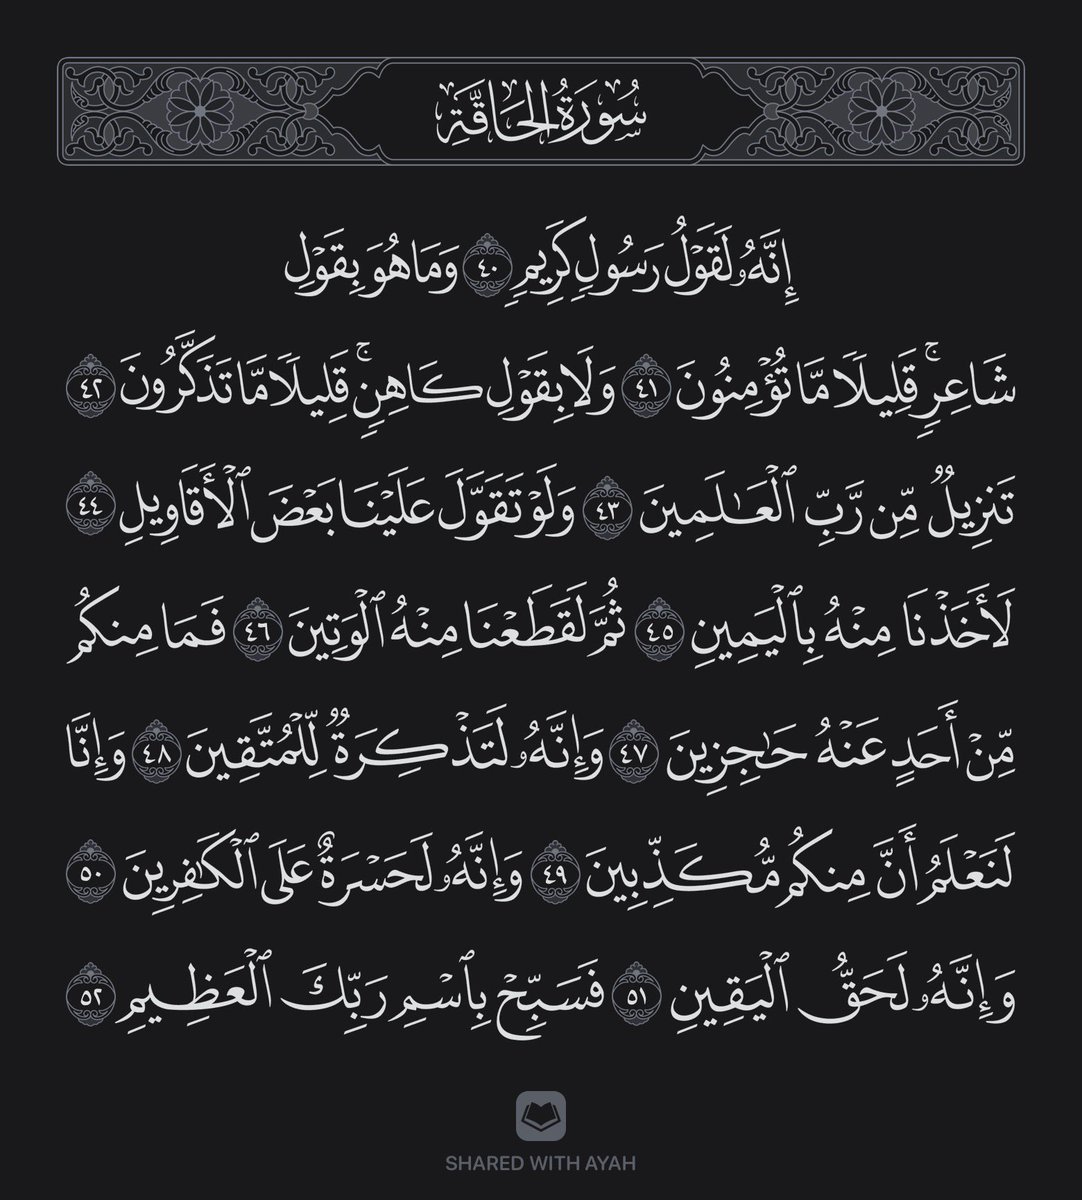 سُورَةُ الحَاقَّةِ
إِنَّهُۥ لَقَوْلُ رَسُولٍ كَرِيمٍ ٤٠ وَمَا هُوَ بِقَوْلِ
شَاعِرٍ ۚ قَلِيلًا مَّا تُؤْمِنُونَ ٤١ وَلَا بِقَوْلِ كَاهِنٍ ۚ قَلِيلًا مَّا تَذَكَّرُونَ ٤٢
تَنزِيلٌ مِّن رَّبِّ ٱلْعَـٰلَمِينَ ٤٣ وَلَوْ تَقَوَّلَ عَلَيْنَا بَعْضَ ٱلْأَقَاوِيلِ ٤٤
لَأَخَذْنَا مِنْهُ بِٱلْيَمِينِ ٤٥ ثُمَّ لَقَطَعْنَا مِنْهُ ٱلْوَتِينَ ٤٦ فَمَا مِنكُم
مِّنْ أَحَدٍ عَنْهُ حَـٰجِزِينَ ٤٧ وَإِنَّهُۥ لَتَذْكِرَةٌ لِّلْمُتَّقِينَ ٤٨ وَإِنَّا
لَنَعْلَمُ أَنَّ مِنكُم مُّكَذِّبِينَ ٤٩ وَإِنَّهُۥ لَحَسْرَةٌ عَلَى ٱلْكَـٰفِرِينَ ٥٠
وَإِنَّهُۥ لَحَقُّ ٱلْيَقِينِ ٥١ فَسَبِّحْ بِٱسْمِ رَبِّكَ ٱلْعَظِيمِ ٥٢
SHARED WITH AYAH